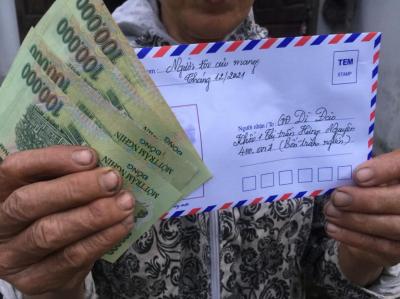 TEM
STAMP
Người tôi cưu mang
Tháng 12/2021
100000
100000
100000
MỘT TRĂM NGHÌN
ĐỒNG
MỘT TRĂM NGHÌN
ĐỒNG
Người nhận (To):
GĐ Dì Đào
Khối 1 Thị trấn Hưng Nguyên
400.000đ (Bốn trăm nghìn)